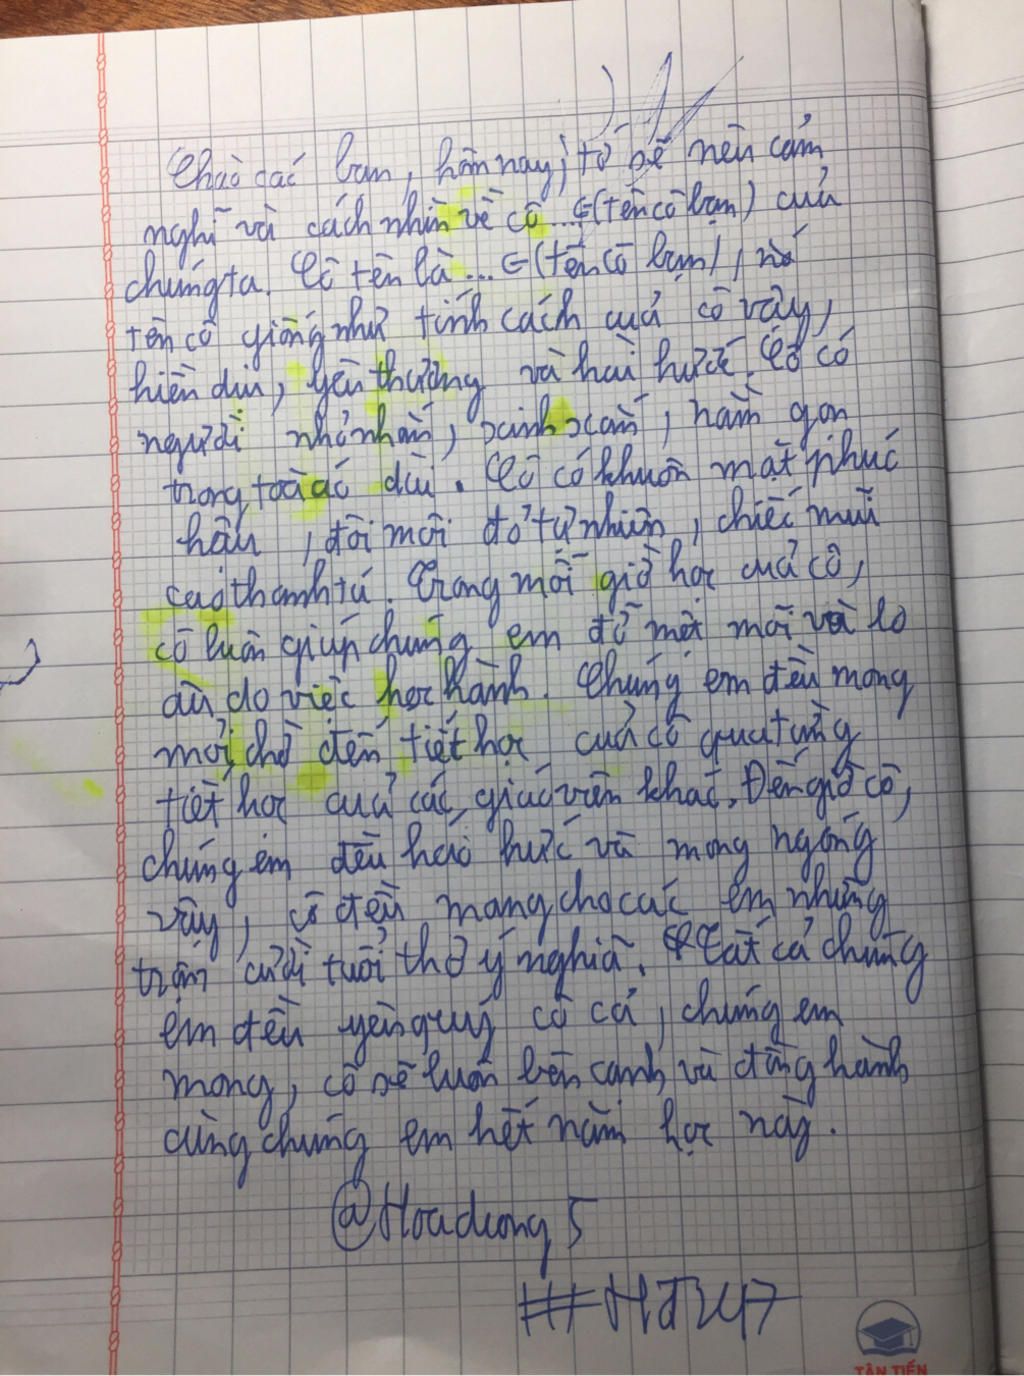 Chào các bạn, hôm nay, tớ sẽ nên cảm
nghĩ và cách nhìn về cô...∈(tên cô bạn) của
chúng ta. Cô tên là...∈(tên cô bạn),
tên cô giống như tính cách của cô vậy,
hiền dịu, yêu thương và hài hước. Cô có
người nhỏ nhắn, xinh xắn, nằm gọn
trong toà áo dài. Cô có khuôn mặt phúc
hậu, đôi môi đỏ tự nhiên, chiếc mũi
cao thanh tú. Trong mỗi giờ học của cô,
cô luôn giúp chúng em đỡ mệt mỏi và lo
âu do việc học hành. Chúng em đều mong
mỏi, chờ đến tiết học của cô qua từng
tiết học của các giáo viên khác. Đến giờ cô,
chúng em đều háo hức và mong ngóng
vậy, cô đều mang cho các em những
trận cười tuổi thơ ý nghĩa. Tất cả chúng
em đều yêu quý cô cả, chúng em
mong, cô sẽ luôn bên cạnh và đồng hành
cùng chúng em hết năm học này.
@Hoaduong5
##HĐ247
TÂN TIẾN